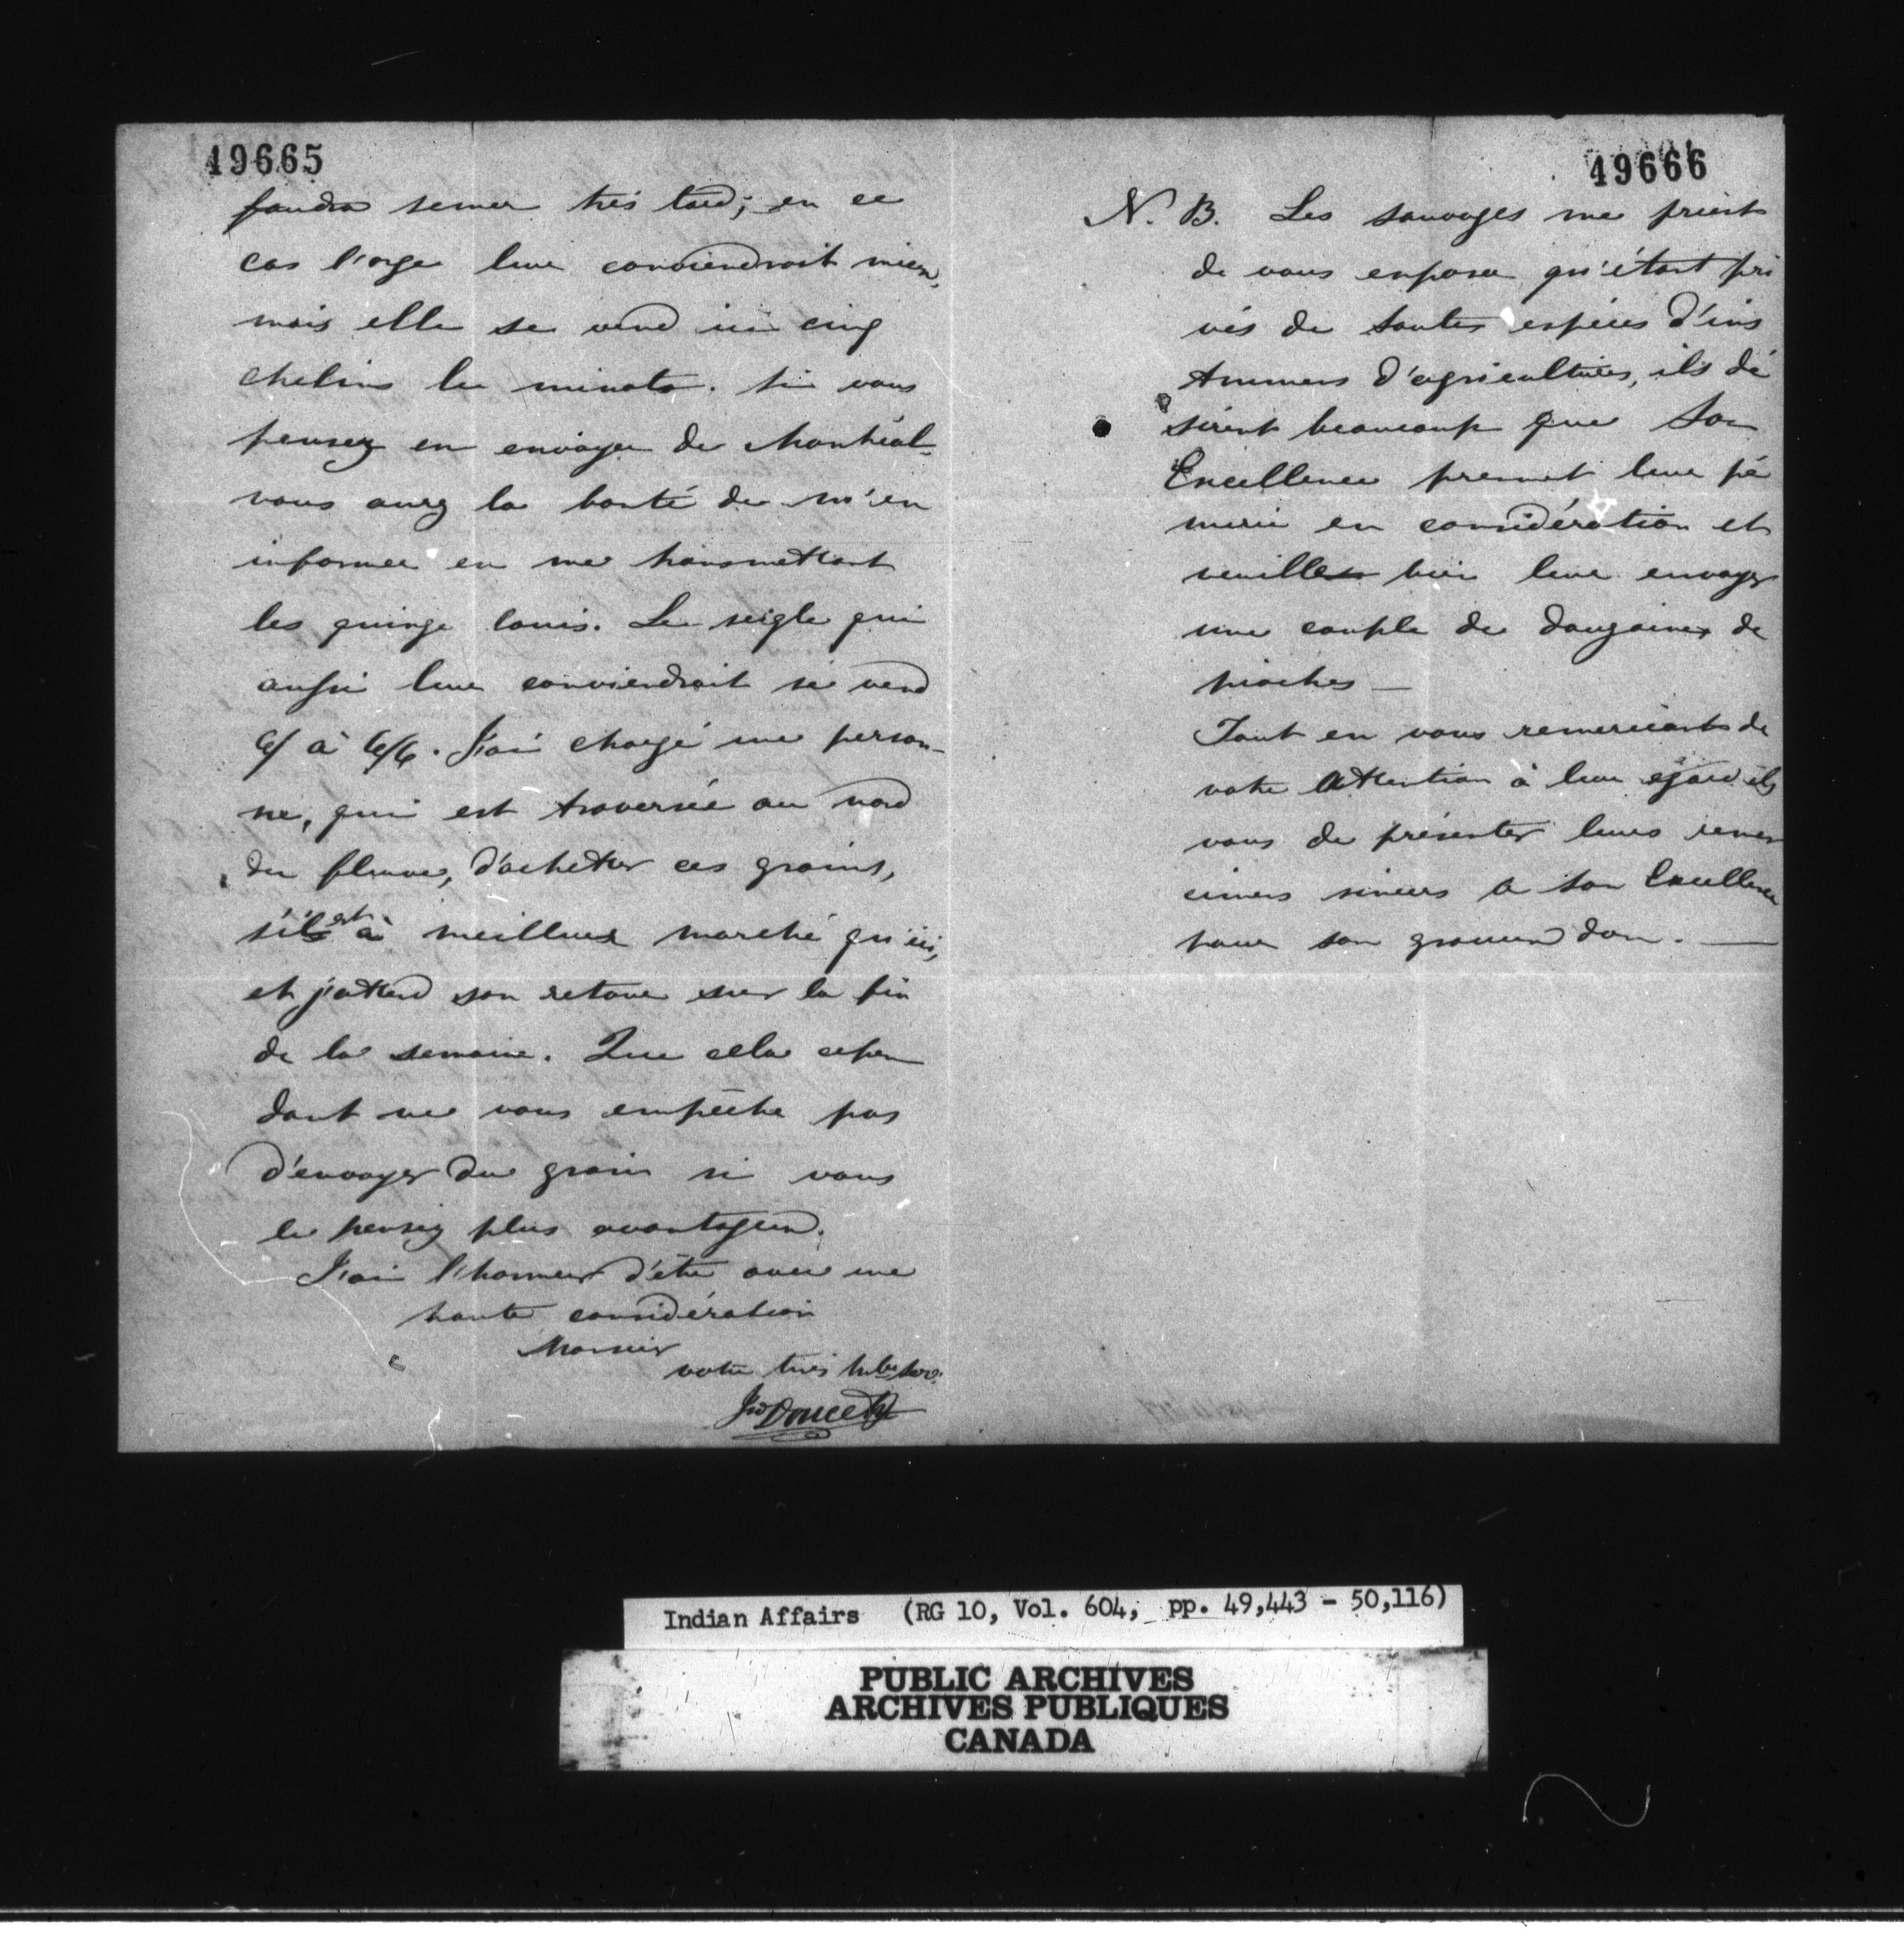 49665
faudra semer très tard; en ce
cas l'orge leur conviendroit mieux,
mais elle se vend ici cinq
chelins le minots. Si vous
pensez en envoyer de Montréal
vous aurez la bonté de m'en
informer en me transmettant
les quinze louis. Le seigle qui
aussi leur conviendroit se vend
6/ à 6/6. J'ai chargé une person-
ne, qui est traversée au nord
du fleuve, d'acheter ces grains,
s'il est à meilleur marché qu'ici,
et j'attend son retour sur la fin
de la semaine. Que cela cepen
dant ne vous empêche pas
d'envoyer du grain si vous
le pensez plus avantageux.
J'ai l'honneur d'être avec une
haute considération
Monsieur
votre très hble serv.
Jw Doucet Ptr
49666
N. B. Les sauvages me prient
de vous exposer qu'étant pri
vés de toutes espèces d'ins
trumens d'agricultures, ils dé
sirent beaucoup que Son
Excellence prennet leur pé
nurie en considération et
veuilles bien leur envoyer
une couple de douzaines de
pioches —
Tout en vous remerciants de
votre attention à leur égard ils
vous de présenter leurs remer
cimens sincers a son Excellence
pour son gracieux don. —
Indian Affairs (RG 10, Vol. 604, pp. 49,443 - 50,116)
PUBLIC ARCHIVES
ARCHIVES PUBLIQUES
CANADA